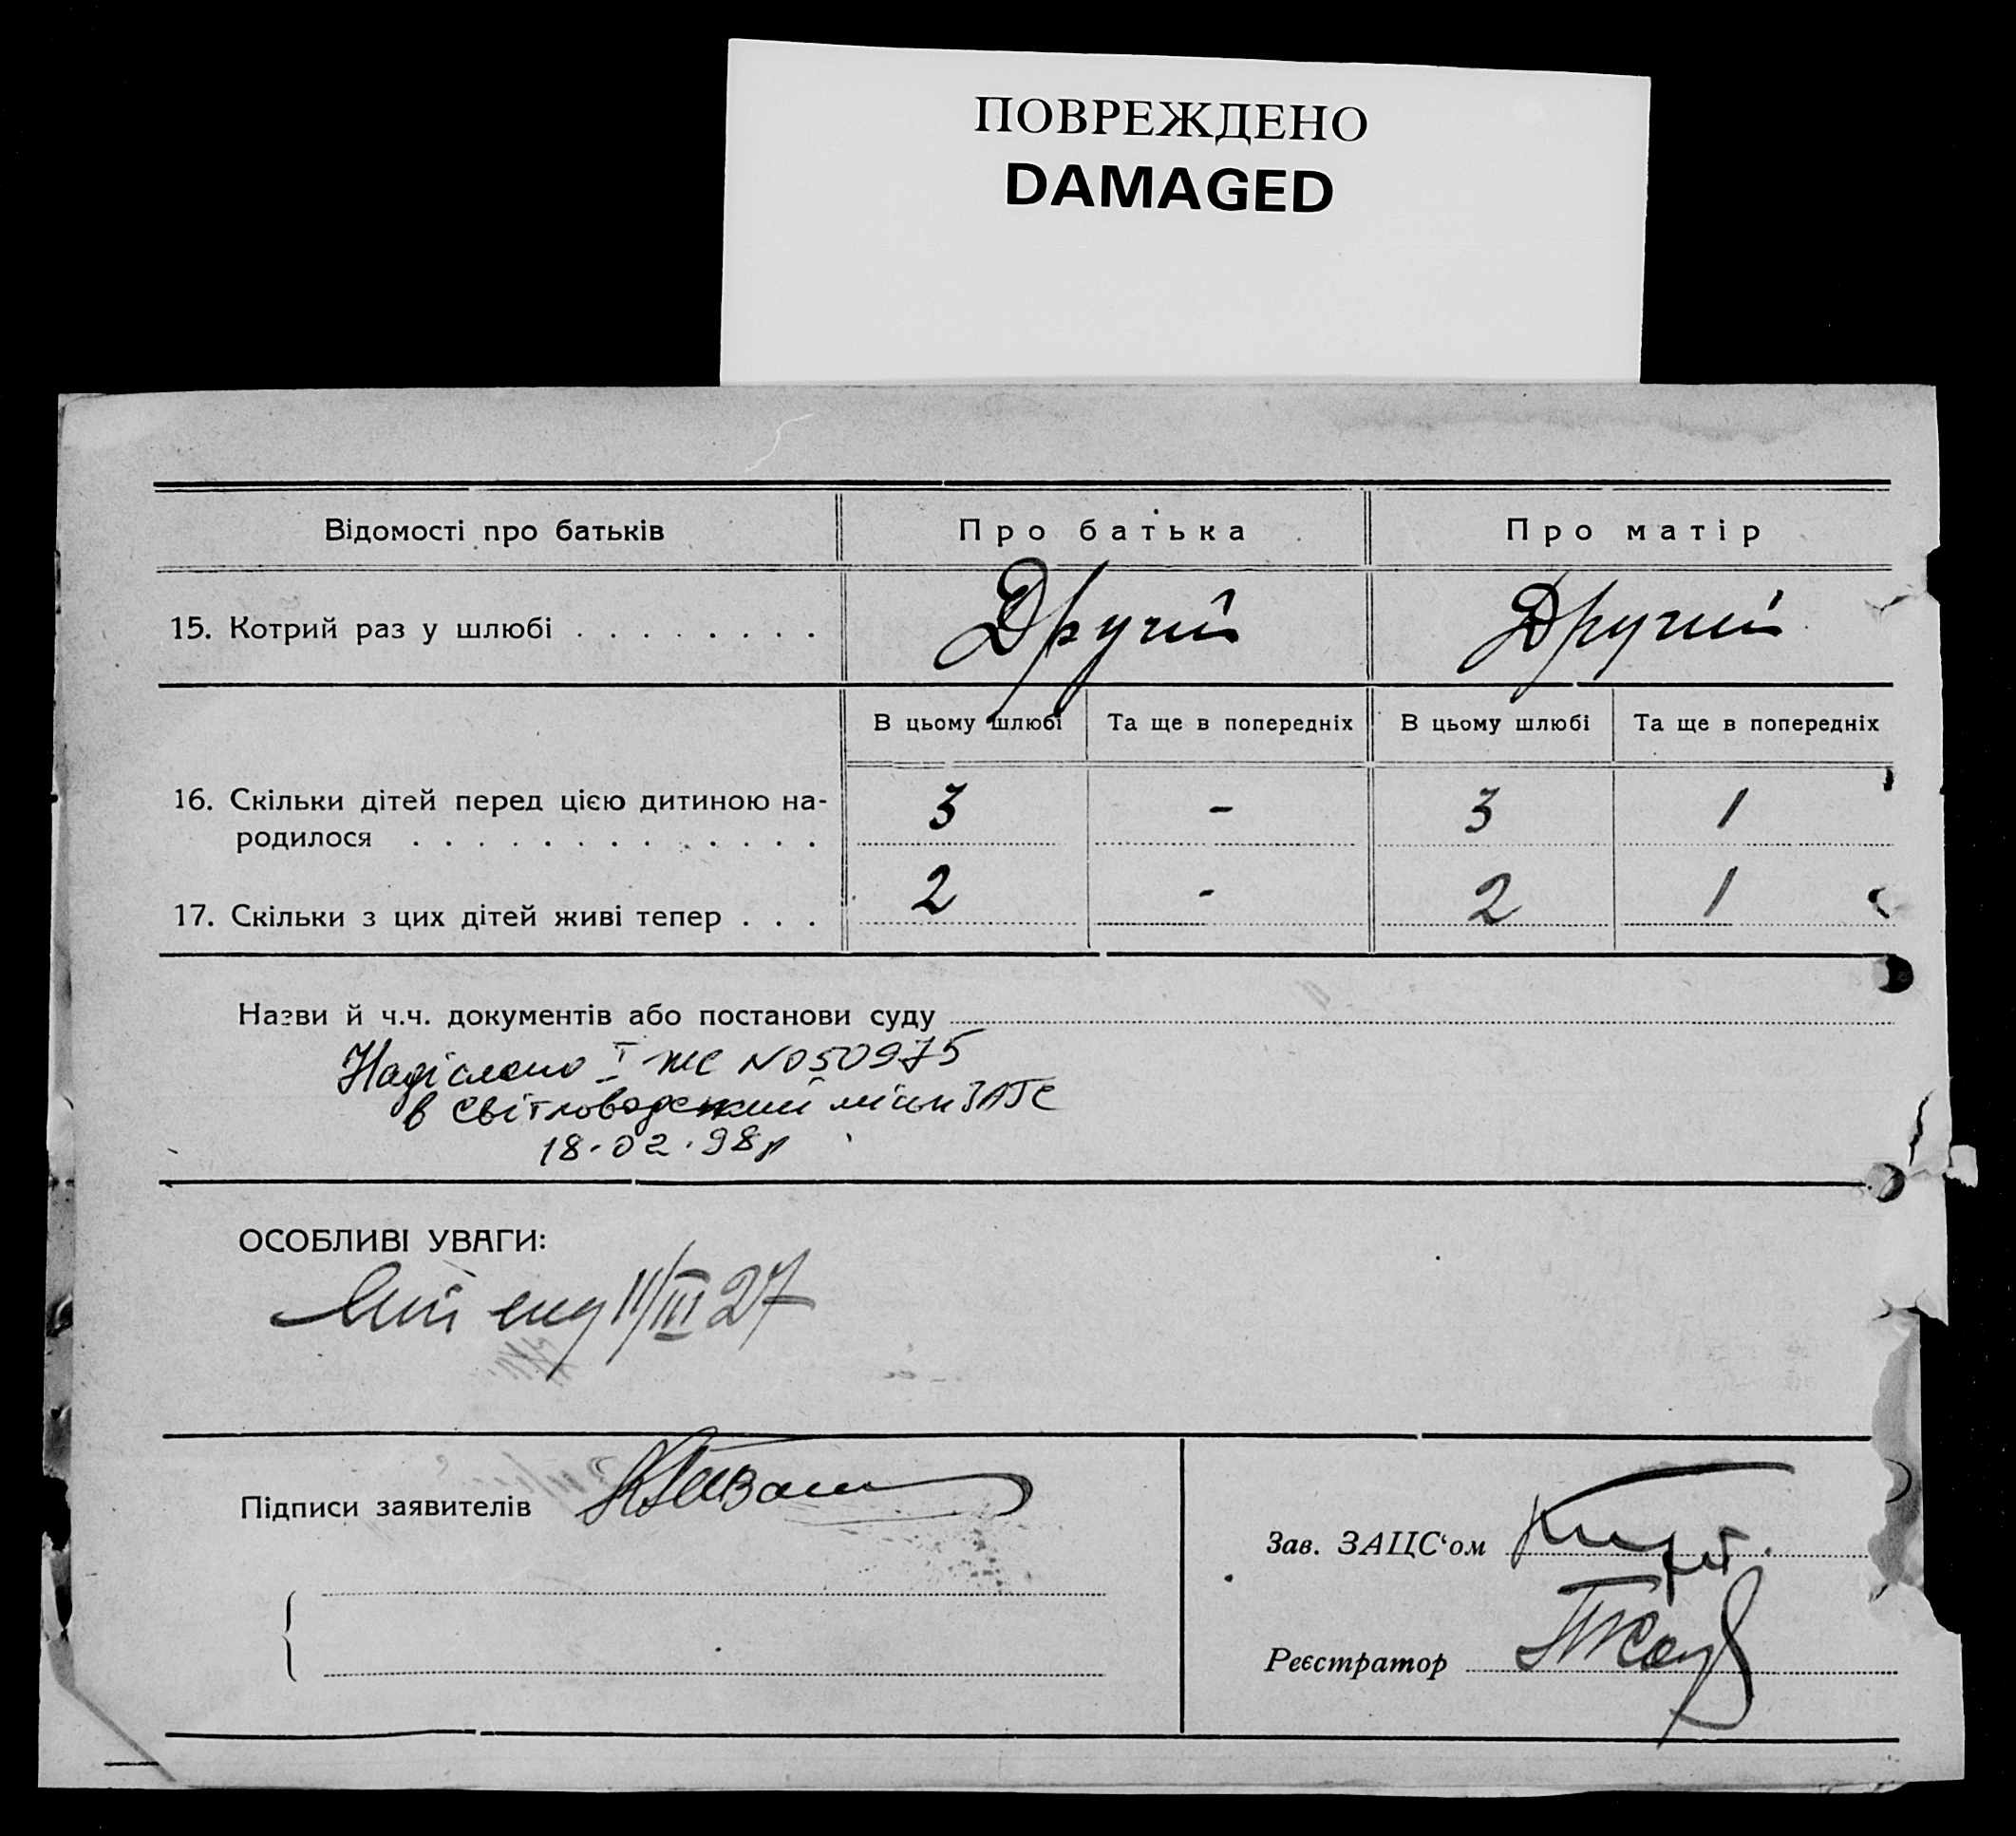 ПОВРЕЖДЕНО
DAMAGED
Відомості про батьків
Про батька
Про матір
15. Котрий раз у шлюбі . . . . . . . .
Другий
Другий
В цьому шлюбі
Та ще в попередніх
В цьому шлюбі
Та ще в попередніх
16. Скільки дітей перед цією дитиною на-
родилося . . . . . . . . . . . . .
3
-
3
1
17. Скільки з цих дітей живі тепер . . .
2
-
2
1
Назви й ч.ч. документів або постанови суду
Надіслано I ЖС N050975
в Світловодський міськ ЗАГС
18.02.98р
ОСОБЛИВІ УВАГИ:
11/III 27
Підписи заявителів
Зав. ЗАЦС‘ом
Реєстратор